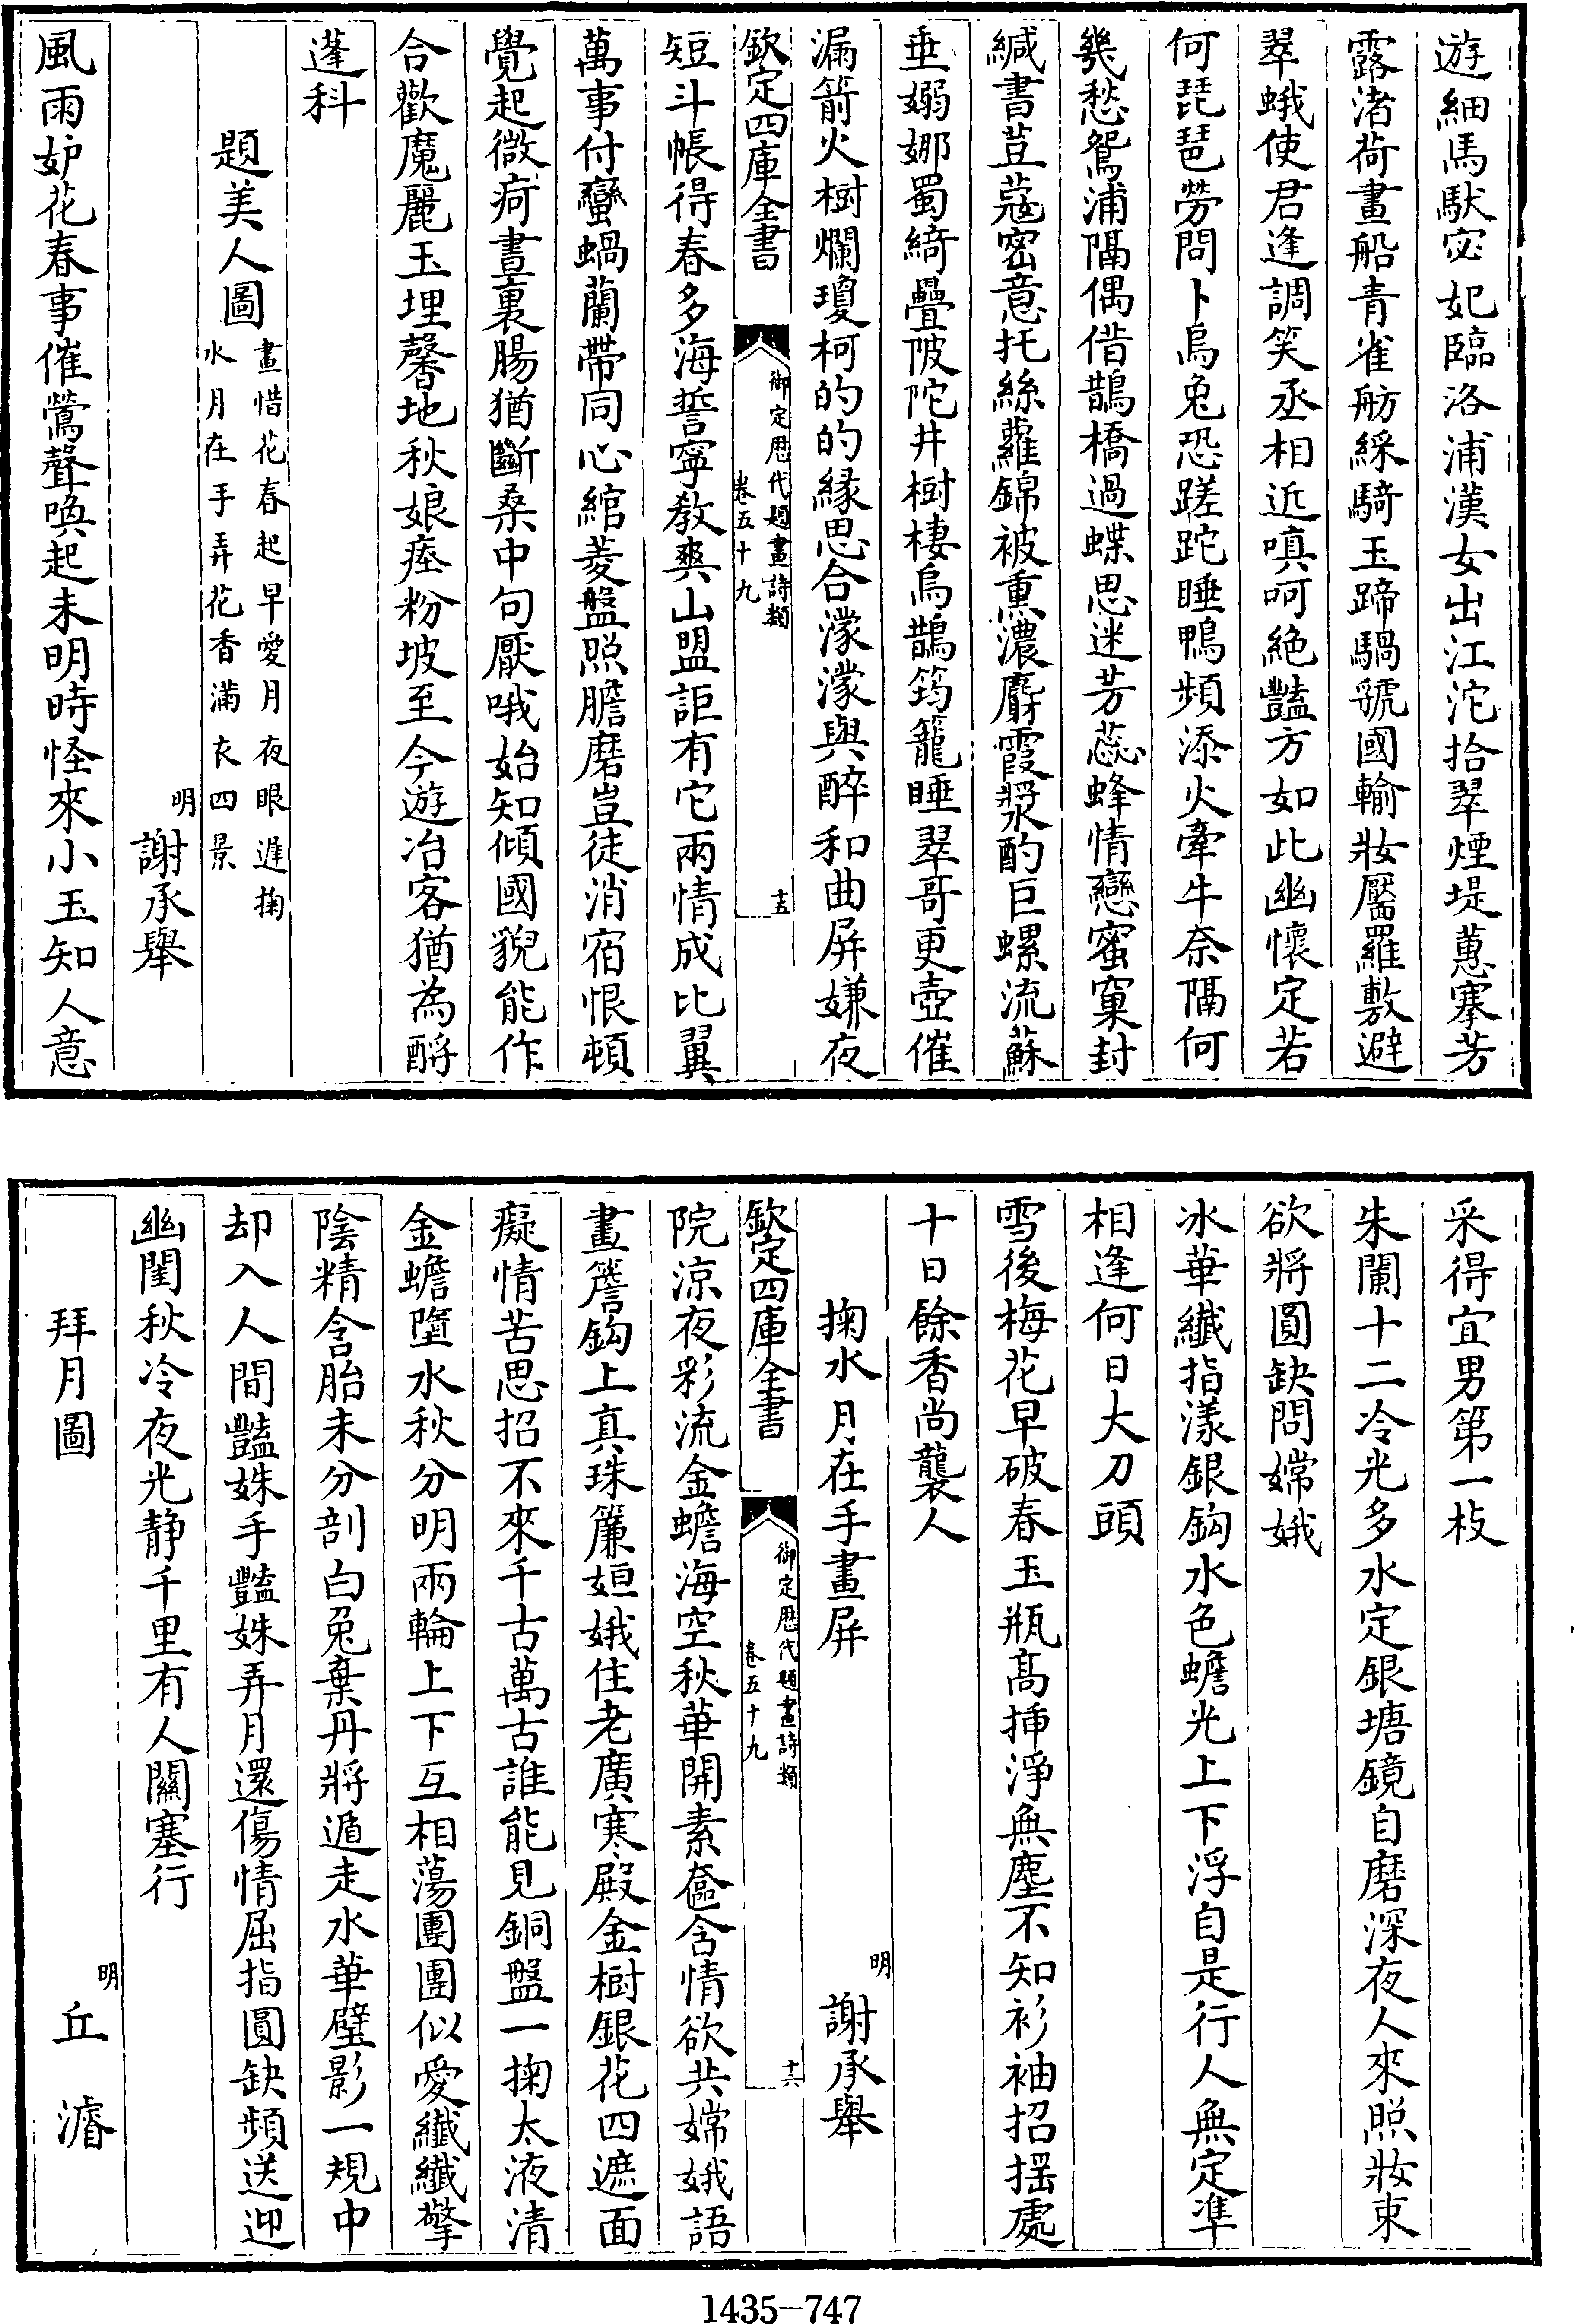 遊細馬馱宓妃臨洛浦漢女出江沱拾翠煙堤蕙搴芳
露渚荷畫船青雀舫綵騎玉蹄騧虢國輸妝靨羅敷避
翠蛾使君逢調笑丞相近嗔呵絶豔方如此幽懷定若
何琵琶勞問卜烏兔恐蹉跎睡鴨頻添火牽牛奈隔何
幾愁鴛浦隔偶借鵲橋過蝶思迷芳蕊蜂情戀蜜窠封
緘書荳蔻密意托絲蘿錦被熏濃麝霞漿酌巨螺流蘇
垂嫋娜蜀綺疊陂陀井樹棲烏鵲筠籠睡翠哥更壺催
漏箭火樹爛瓊柯的的緣思合濛濛與醉和曲屏嫌夜
欽定四庫全書
御定歷代題畫詩類
卷五十九
十五
短斗帳得春多海誓寧教爽山盟詎有它兩情成比翼
萬事付蠻蝸蘭帶同心綰菱盤照膽磨豈徒消宿恨頓
覺起微疴晝裏腸猶斷桑中句厭哦始知傾國貌能作
合歡魔麗玉埋馨地秋娘瘞粉坡至今遊冶客猶為酹
蓬科
題美人圖
畫惜花春起早愛月夜眠遲掬
水月在手弄花香滿衣四景
明
謝承舉
風雨妒花春事催鶯聲喚起未明時怪來小玉知人意
采得宜男第一枝
朱闌十二冷光多水定銀塘鏡自磨深夜人來照妝束
欲將圓缺問嫦娥
冰華纖指漾銀鈎水色蟾光上下浮自是行人無定準
相逢何日大刀頭
雪後梅花早破春玉瓶高揷淨無塵不知衫袖招揺處
十日餘香尚襲人
掬水月在手畫屏
明
謝承舉
欽定四庫全書
御定歷代題畫詩類
卷五十九
十六
院涼夜彩流金蟾海空秋華開素奩含情欲共嫦娥語
畫簷鈎上真珠簾姮娥住老廣寒殿金樹銀花四遮面
癡情苦思招不來千古萬古誰能見銅盤一掬太液清
金蟾墮水秋分明兩輪上下互相蕩團團似愛纖纖擎
陰精含胎未分剖白兔棄丹將遁走水華璧影一規中
却入人間豔姝手豔姝弄月還傷情屈指圓缺頻送迎
幽閨秋冷夜光静千里有人關塞行
拜月圖
明
丘濬
1435-747